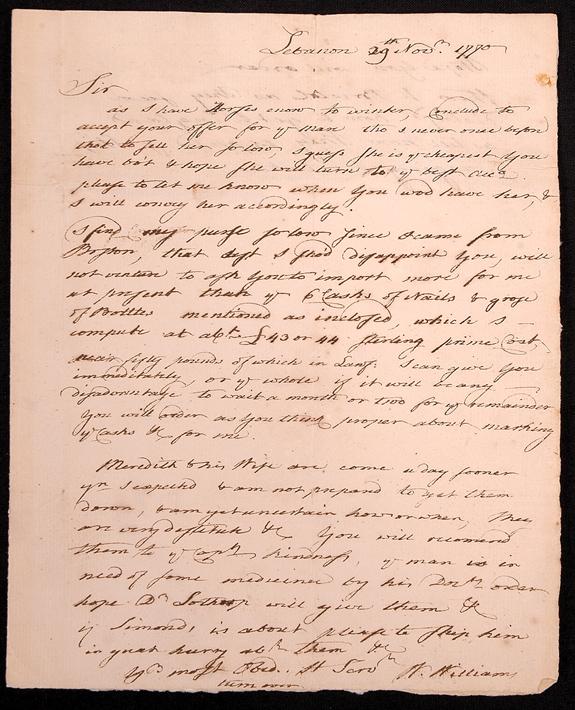 Lebanon 29th Novr. 1770
Sir
as I have Horses enow to winter, Conclude to
accept your offer for ye Mare tho I never once before
that to sell her so low, I guess She is ye cheapest you
have bot & hope She will turn to ye best
please to let me know when you wod have her, &
I will convey her accordingly.
I find my purse so low since I came from
Boston, that lest I shod disappoint you, will
not venture to ask you to import more for me
at present than ye 6 Casks of Nails & groce
of Bottles mentioned as inclosed, which I
compute at abt. £43 or 44 sterling prime Cost,
near fifty pounds of which in I can give you
immediately, or ye whole if it will be any
disadvantage to wait a month or two for ye remainder
you will order as you think proper about marking
ye Casks &c for me.
Meredith & his Wife are come a day sooner
yn I expected & am not prepared to get them
down, & am yet uncertain how or when, They
are very destitute &c You will recomend
them to ye Captn. kindness, ye man is in
need of some medicines by his Doctrs. order
hope Dr. Lothrop will give them &c
if Simond, is about please to step him
in great hurry abt. them &c
Yr. most Obed. H Servt. W. Williams
turn over